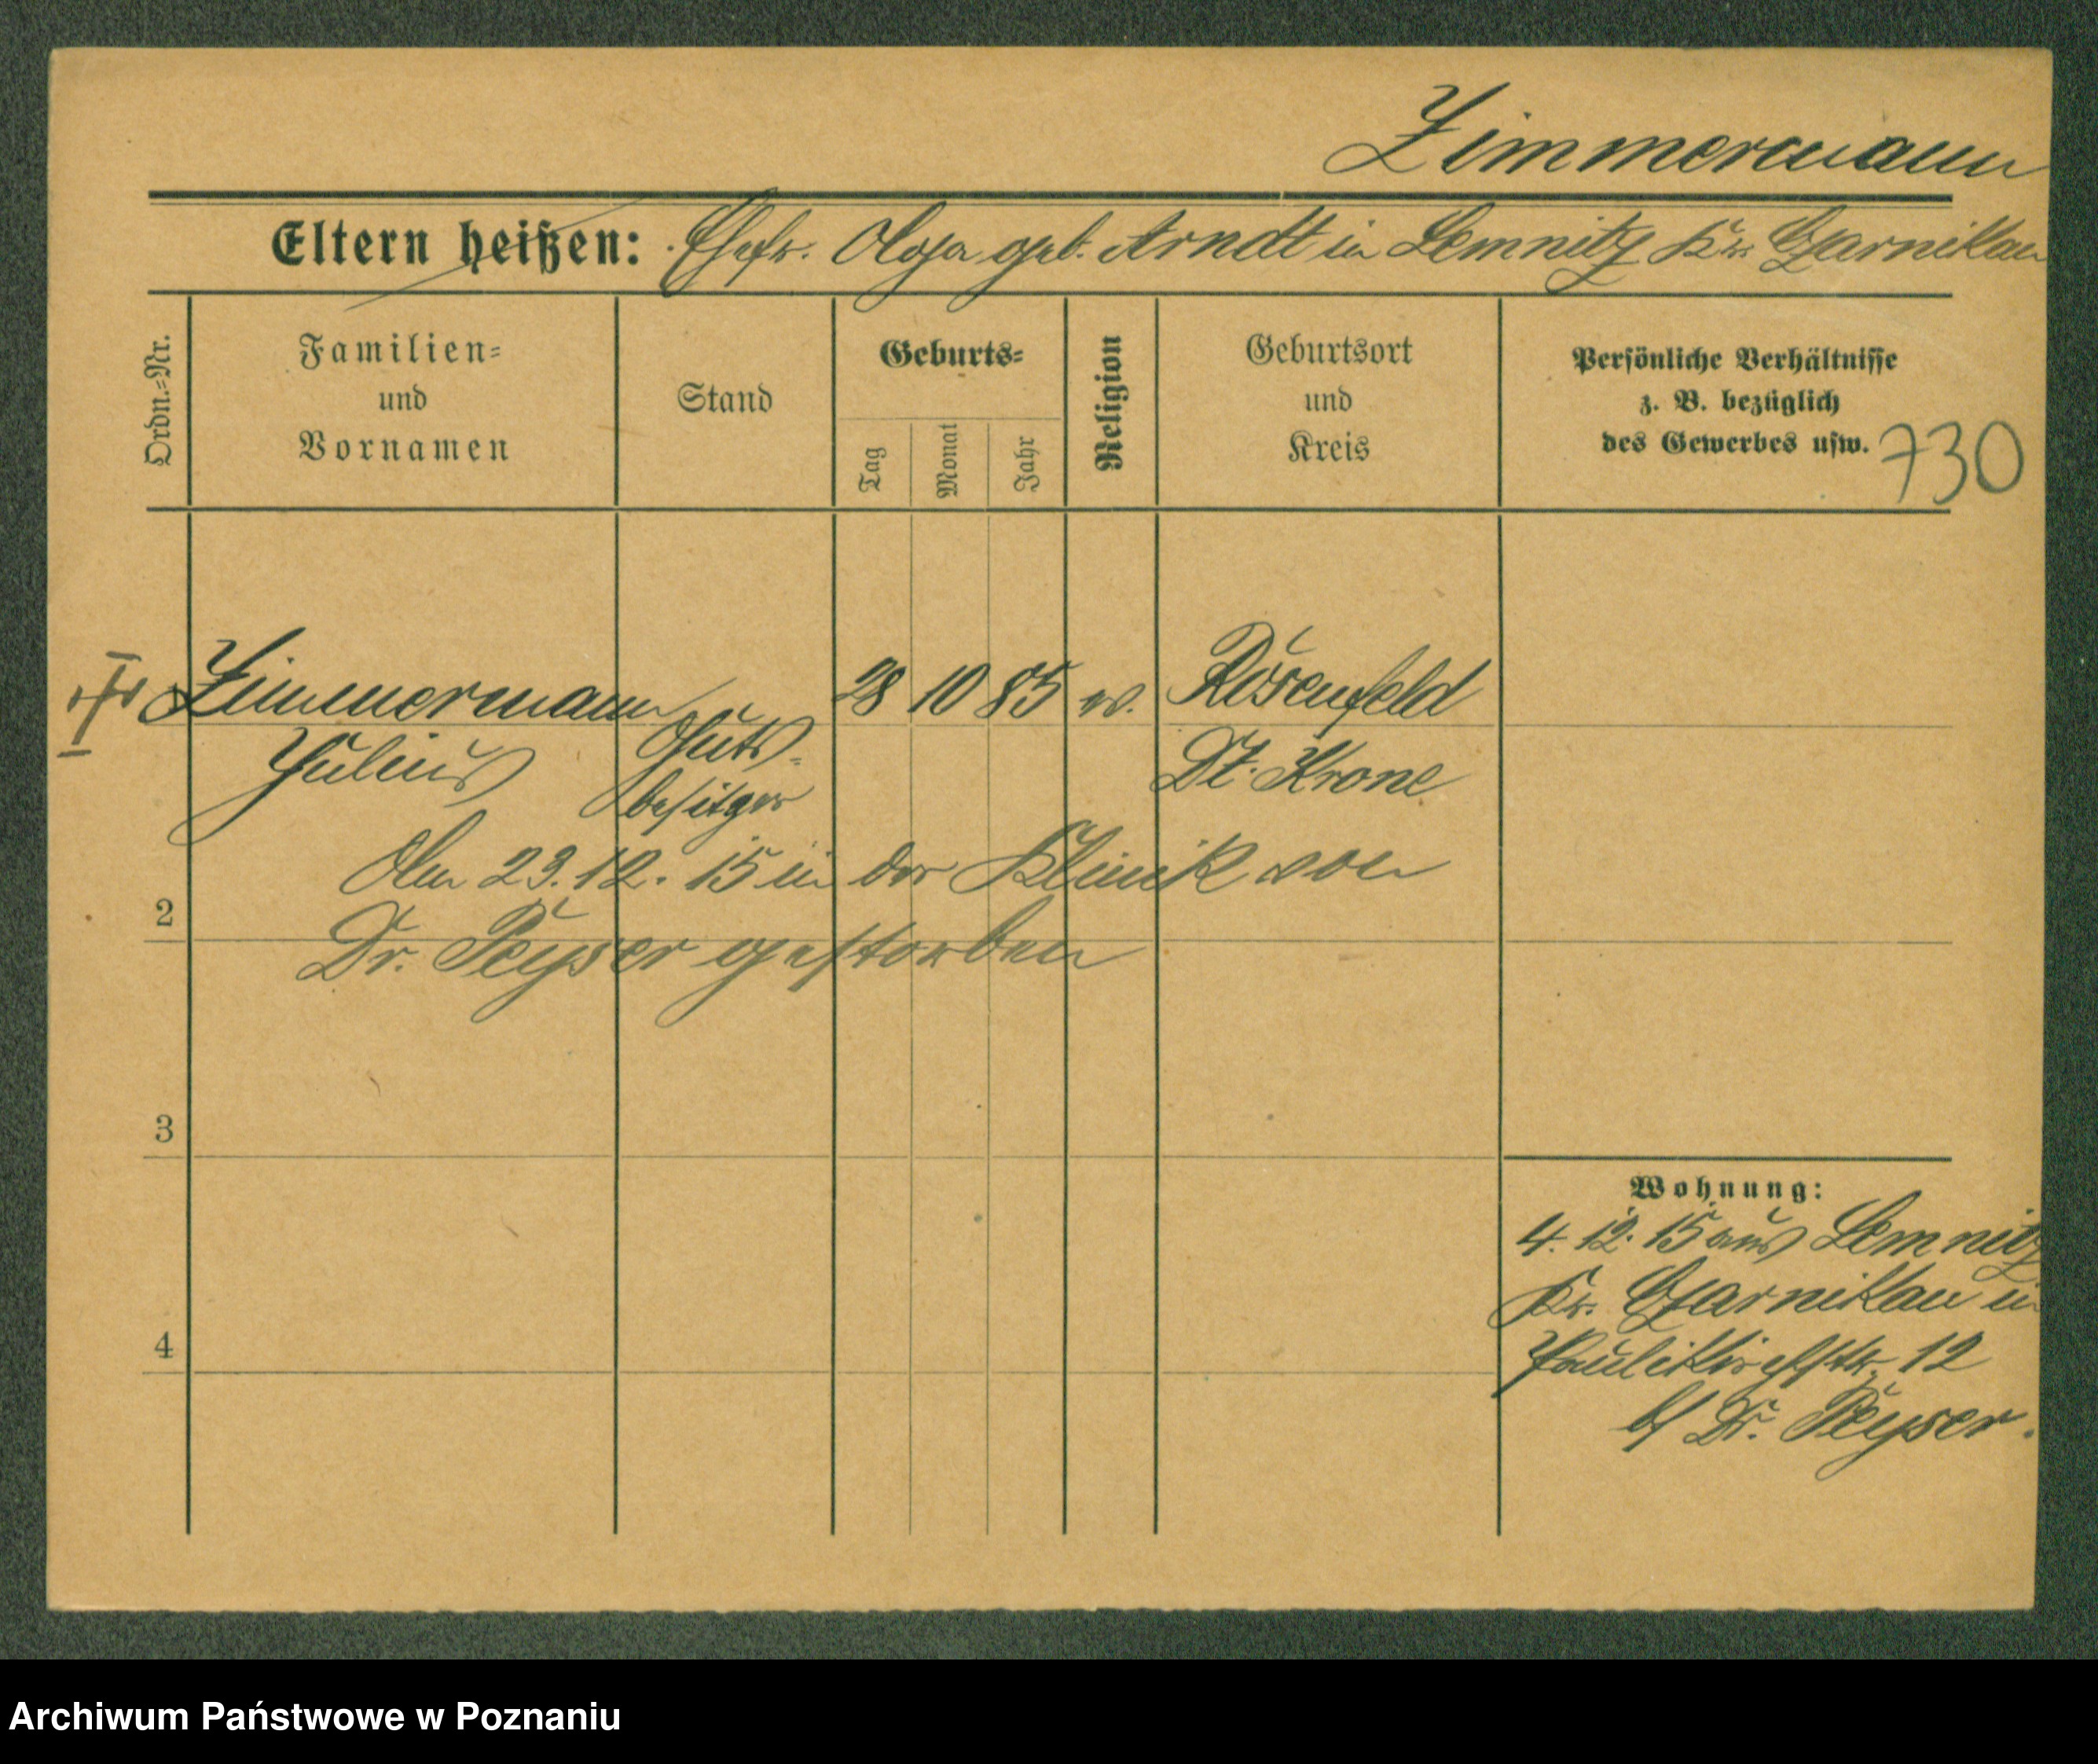 Zimmermann
Eltern heißen: Ehefr. Olga geb. Arndt in Lemnitz Kr. Czarnikau
Ordn.=Nr.
Familien=
und
Vornamen
Stand
Geburts=
Tag
Monat
Jahr
Religion
Geburtsort
und
Kreis
Persönliche Verhältnisse
z. B. bezüglich
des Gewerbes usw.
730
Zimmermann 28 10 85 ev. Rosenfeld
Julius Guts=
besitzer
Dt. Krone
Am 23.12.15 in der Klinik von
2
Dr. Peyser gestorben
3
Wohnung:
4.12.15 aus Lemnitz
Kr. Czarnikau in
4
Paulikirchstr. 12
b/ Dr. Peyser.
Archiwum Państwowe w Poznaniu